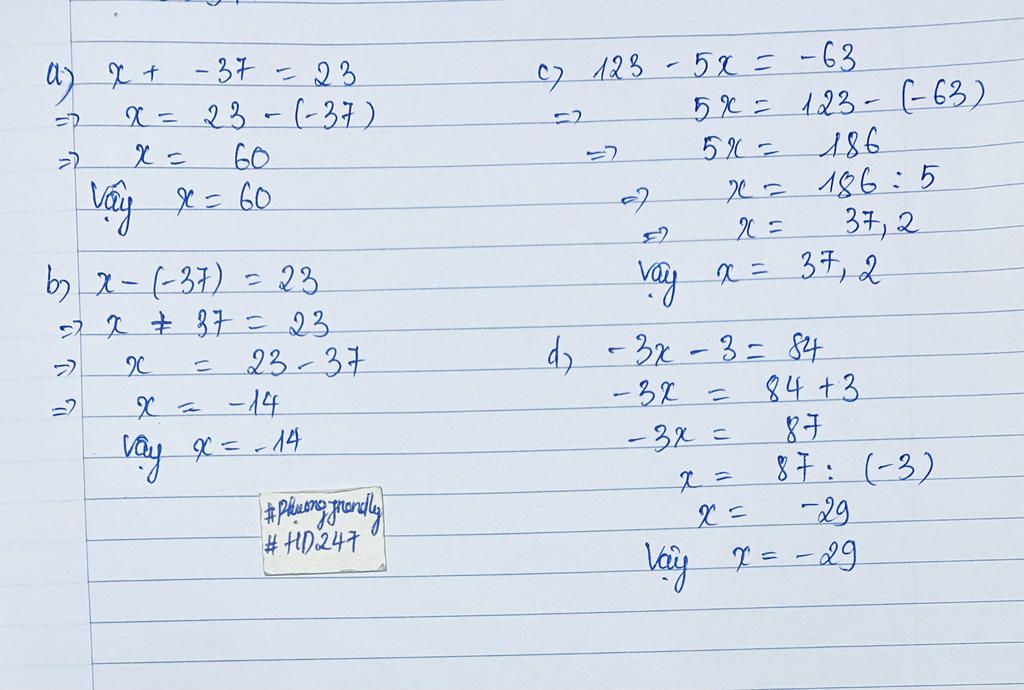 a) x + -37 = 23
=> x = 23 - (-37)
=> x = 60
Vậy x = 60
b) x - (-37) = 23
=> x + 37 = 23
=> x = 23 - 37
=> x = -14
Vậy x = -14
#Phuongfrendly
#HD247
c) 123 - 5x = -63
=> 5x = 123 - (-63)
=> 5x = 186
=> x = 186 : 5
=> x = 37,2
Vậy x = 37,2
d) -3x - 3 = 84
-3x = 84 + 3
-3x = 87
x = 87 : (-3)
x = -29
Vậy x = -29